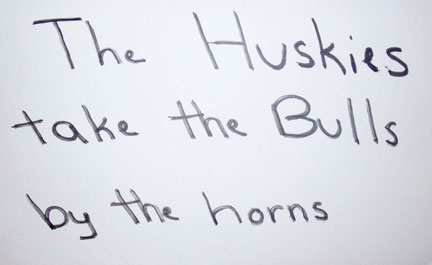 The Huskies
take the Bulls
by the horns